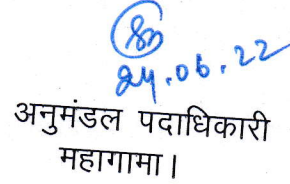 24.06.22
अनुमंडल पदाधिकारी
महागामा।